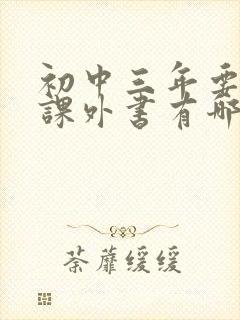 初中三年要
課外書有哪
荼蘼缓缓